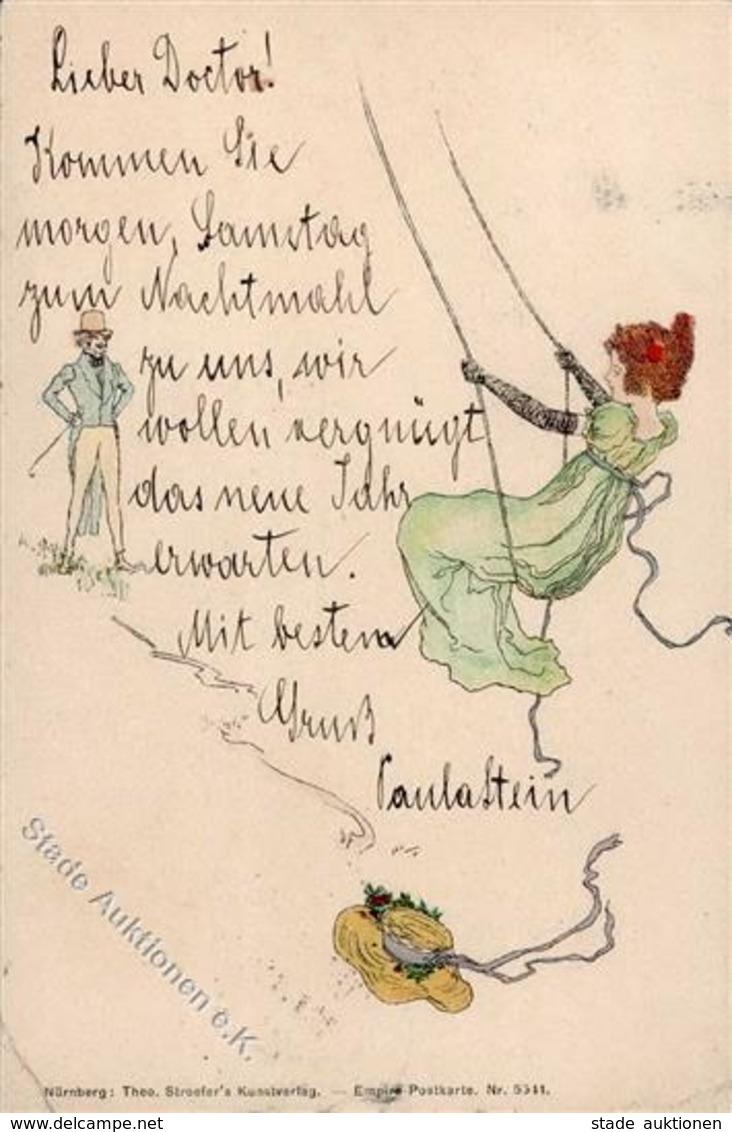 Lieber Doctor!
Kommen Sie
morgen, Samstag
zum Nachtmahl
zu uns, wir
wollen vergnügt
das neue Jahr
erwarten.
Mit besten
Gruß
Paula Stein
Stade Auktionen e.K.
Nürnberg: Theo. Stroefer's Kunstverlag. — Empire-Postkarte. Nr. 5341.
stade auktionen